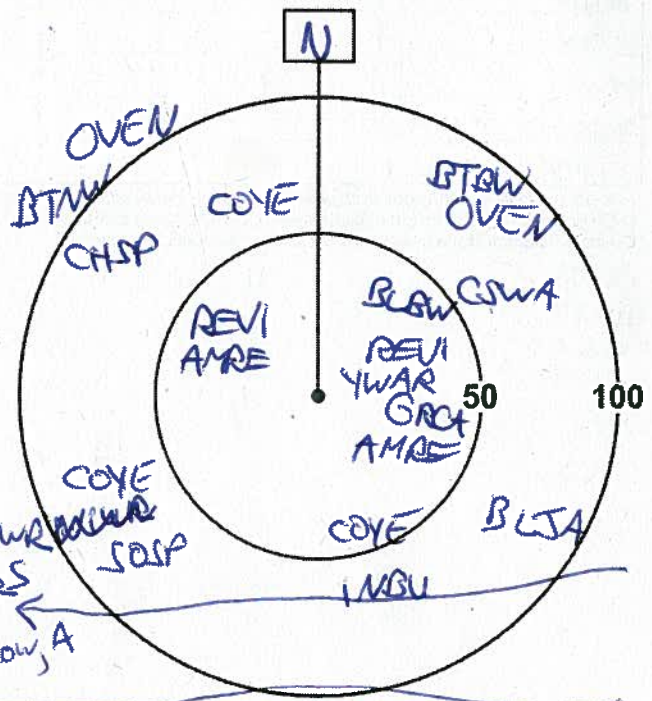 N
OVEN
BTNW
COYE
BTBW
OVEN
CHSP
BLBW CSWA
REVI
AMRE
REVI
YWAR
GRCA
AMRE
50
100
COYE
SOSP
COYE
BLJA
INBU